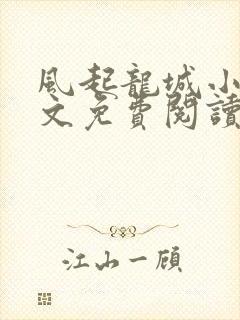 風起龍城小
文免費閱讀
江山一顧